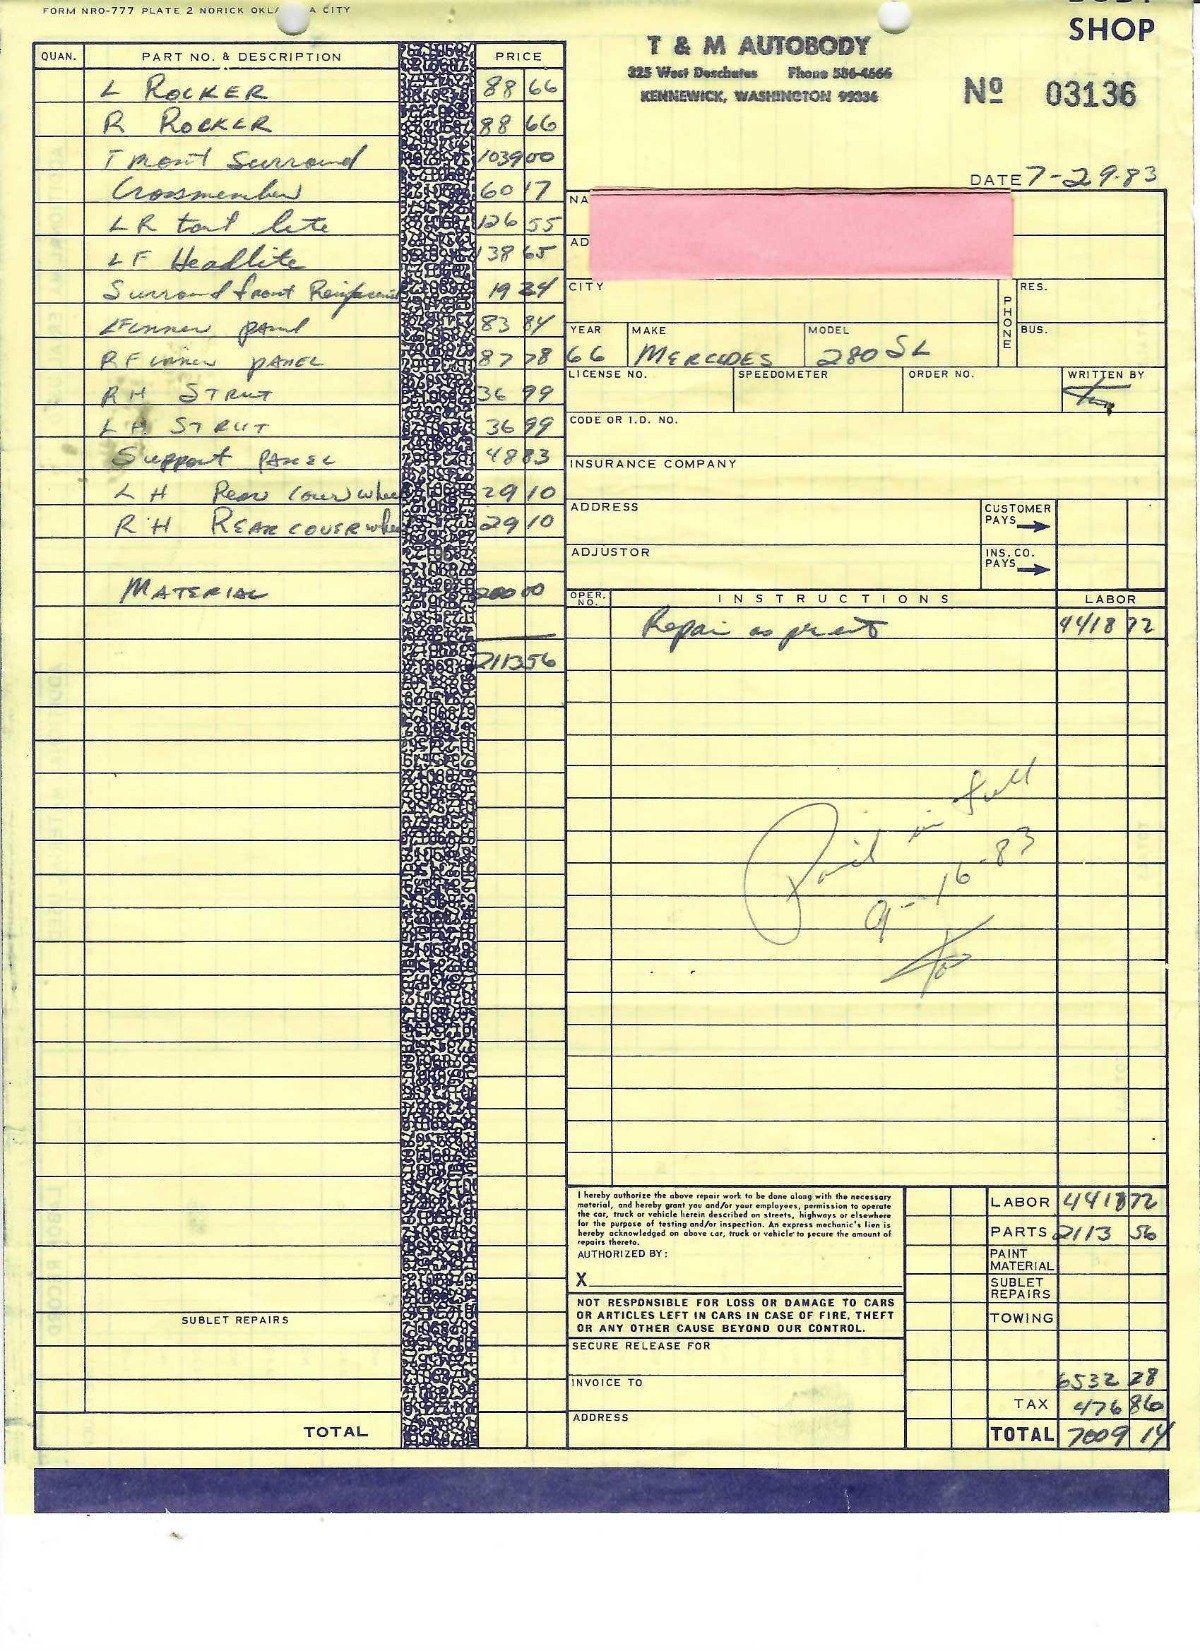 FORM NRO-777 PLATE 2 NORICK OKLA A CITY
SHOP
T & M AUTOBODY
325 West Deschutes Phone 586-4666
KENNEWICK, WASHINGTON 99336
Nº 03136
DATE 7-29-83
QUAN. PART NO. & DESCRIPTION PRICE
L ROCKER 88 66
R ROCKER 88 66
Front Surround 1039 00
Crossmember 60 17
LR tail lite 126 55
LF Headlite 138 65
Surround front 19 24
LF inner panel 83 84
RF inner PANEL 87 78
RH STRUT 36 99
LH STRUT 36 99
Support PANEL 48 83
LH Rear cover whe 29 10
RH REAR COVER whe 29 10
MATERIAL 200 00
2113 56
SUBLET REPAIRS
TOTAL
NA
AD
CITY
PHONE
RES.
BUS.
YEAR MAKE MODEL
66 MERCEDES 280 SL
LICENSE NO. SPEEDOMETER ORDER NO. WRITTEN BY
CODE OR I.D. NO.
INSURANCE COMPANY
ADDRESS
CUSTOMER PAYS
ADJUSTOR
INS. CO. PAYS
OPER. NO. INSTRUCTIONS LABOR
Repair as per est 4418 72
Paid in full
9-16-83
I hereby authorize the above repair work to be done along with the necessary
material, and hereby grant you and/or your employees, permission to operate
the car, truck or vehicle herein described on streets, highways or elsewhere
for the purpose of testing and/or inspection. An express mechanic's lien is
hereby acknowledged on above car, truck or vehicle to secure the amount of
repairs thereto.
AUTHORIZED BY:
X
NOT RESPONSIBLE FOR LOSS OR DAMAGE TO CARS
OR ARTICLES LEFT IN CARS IN CASE OF FIRE, THEFT
OR ANY OTHER CAUSE BEYOND OUR CONTROL.
SECURE RELEASE FOR
INVOICE TO
ADDRESS
LABOR 4418 72
PARTS 2113 56
PAINT MATERIAL
SUBLET REPAIRS
TOWING
6532 28
TAX 476 86
TOTAL 7009 14